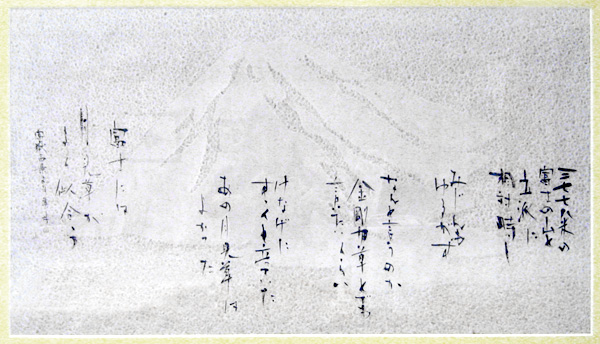 三七七八米の
富士の山と
立派に
相対峙し
みじんも
ゆるがず
なんと言うのか
金剛力草とでも
言いたいくらい
けなげに
すっくと立っていた
あの月見草は
よかった
富士には
月見草が
よく似合う